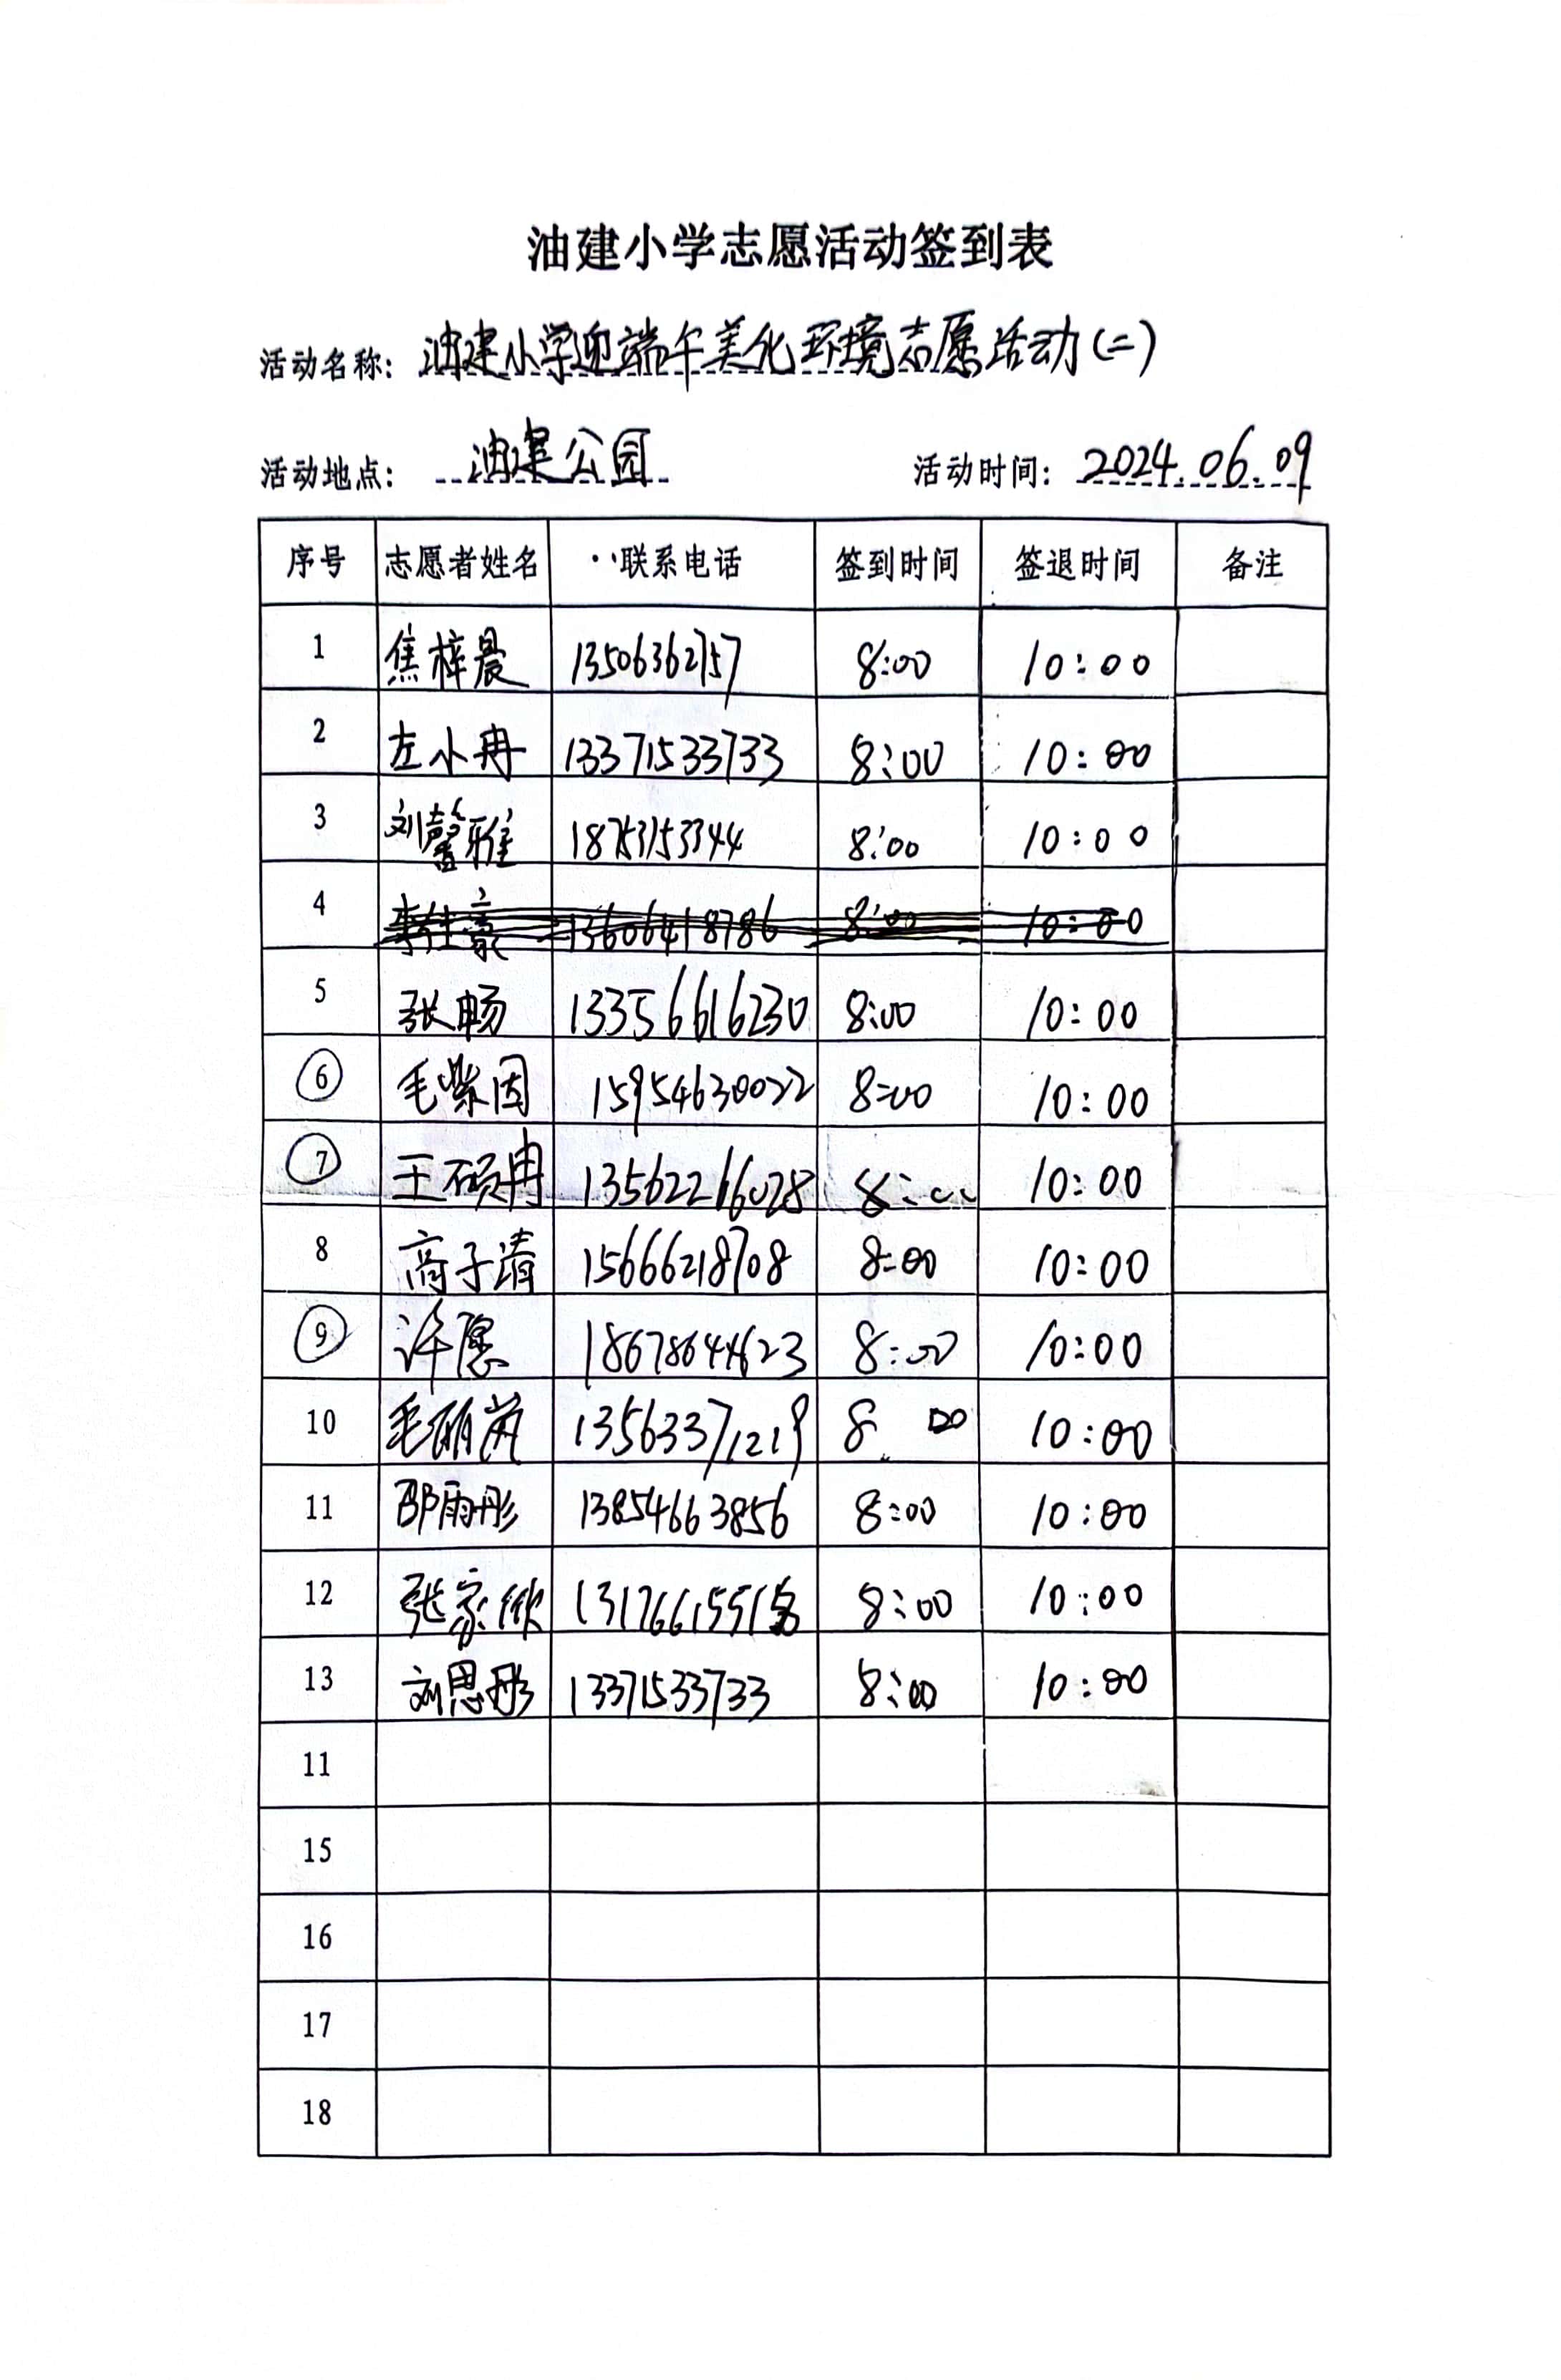 油建小学志愿活动签到表
活动名称: 油建小学迎端午美化环境志愿活动(二)
活动地点: 油建公园 活动时间: 2024.06.09
序号 志愿者姓名 联系电话 签到时间 签退时间 备注
1 焦梓晨 13506362757 8:00 10:00
2 左小冉 13371533733 8:00 10:00
3 刘馨雅 18753153344 8:00 10:00
4 13606418786 8:00 10:00
5 张畅 13356616230 8:00 10:00
6 毛紫因 15954630022 8:00 10:00
7 王硕冉 13562266028 8:00 10:00
8 商子清 15666218708 8:00 10:00
9 许愿 18678644623 8:00 10:00
10 13563371219 8:00 10:00
11 邵雨彤 13854663856 8:00 10:00
12 张家欣 8:00 10:00
13 刘思彤 13371533733 8:00 10:00
11
15
16
17
18